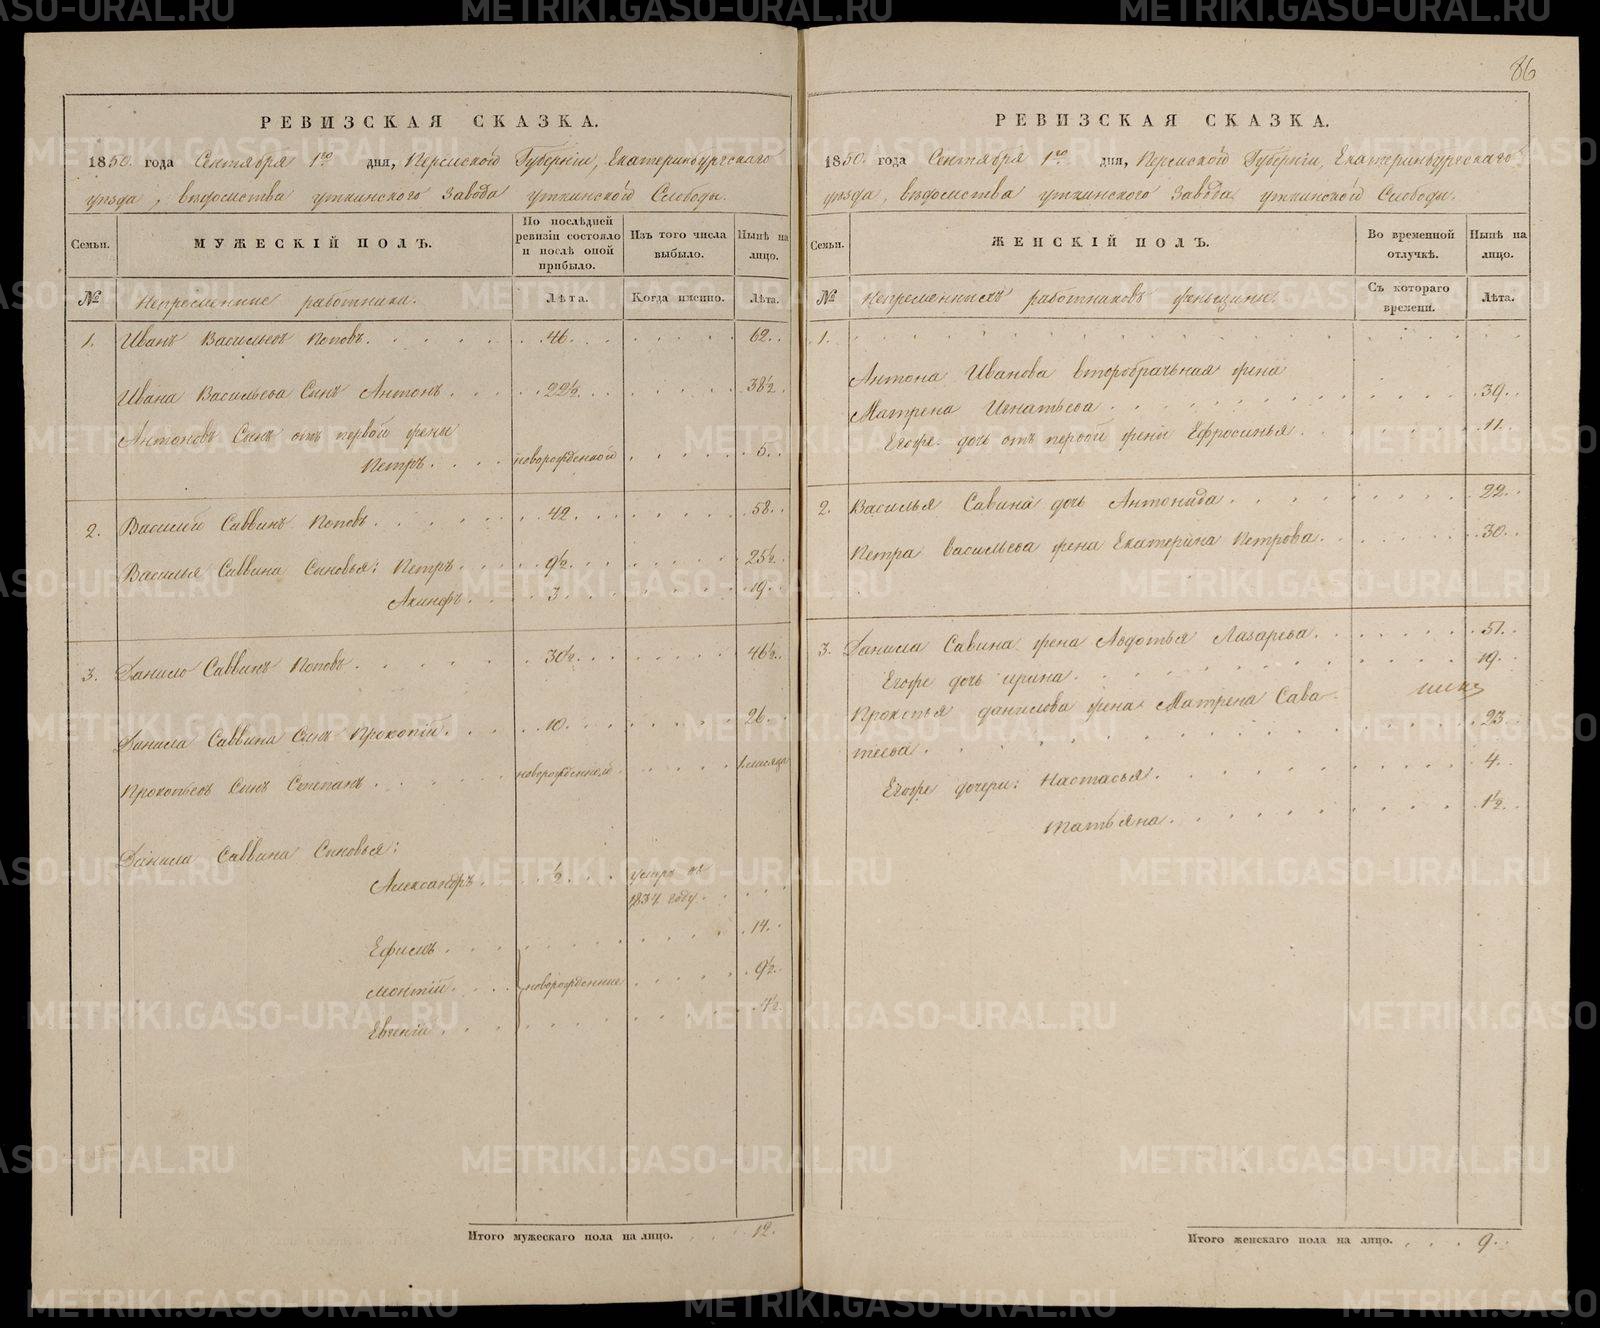 РЕВИЗСКАЯ СКАЗКА.
1850. года Сентября 1го дня, Пермской Губерніи, Екатеринбургскаго
уезда, ведомства уткинского Завода уткинской Слободы.
Семьи.
МУЖЕСКІЙ ПОЛЪ.
По послѣдней ревизіи состояло и послѣ оной прибыло.
Изъ того числа выбыло.
Нынѣ на лицо.
№
Непременные работники.
Лѣта.
Когда именно.
Лѣта.
1. Иванъ Васильевъ Поповъ. 46. 62.
Ивана Васильева Сынъ Антонъ. 22½. 38½.
Антоновъ Сынъ отъ первой жены
Петръ. новорожденной 5.
2. Василий Саввинъ Поповъ. 42. 58.
Василья Саввина Сыновья: Петръ. 9½. 25½.
Акинфъ. 3. 19.
3. Данило Саввинъ Поповъ. 30½. 46½.
Данила Саввина Сынъ Прокопій. 10. 26.
Прокопьевъ Сынъ Степанъ. 1 месяца
Данила Саввина Сыновья:
Александръ. ½. умеръ въ
1837 году.
Ефимъ. 14.
новорожденные 9½.
Евгеній. 4½.
Итого мужескаго пола на лицо. 12.
86
РЕВИЗСКАЯ СКАЗКА.
1850. года Сентября 1го дня, Пермской Губерніи, Екатеринбургскаго
уезда, ведомства уткинского Завода уткинской Слободы.
Семьи.
ЖЕНСКІЙ ПОЛЪ.
Во временной отлучкѣ.
Нынѣ на лицо.
№
Непременныхъ работниковъ женщины.
Съ котораго времени.
Лѣта.
1.
Антона Иванова второбрачная жена
Матрена Игнатьева. 39.
Егоже дочь отъ первой жены Ефросинья. 11.
2. Василья Савина дочь Антонида. 22.
Петра Васильева жена Екатерина Петрова. 30.
3. Данила Савина жена Авдотья Лазарева. 51.
Егоже дочь ирина. 19.
Прокопья данилова жена Матрена Сава-
теева. 23.
Егоже дочери: Настасья. 4.
татьяна. 1½.
Итого женскаго пола на лицо. 9.
METRIKI.GASO-URAL.RU